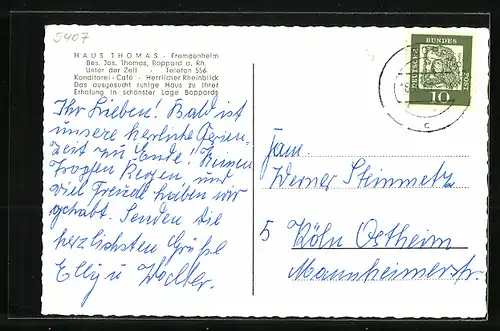 5407
HAUS THOMAS - Fremdenheim
Bes. Jos. Thomas, Boppard a. Rh.
Unter der Zeil - Telefon 556
Konditorei - Café - Herrlicher Rheinblick
Das ausgesucht ruhige Haus zu Ihrer
Erholung in schönster Lage Boppards
Ihr Lieben! Bald ist
unsere herrliche Ferien-
zeit zu Ende! Keinen
Tropfen Regen, und
viel Freude haben wir
gehabt. Senden die
herzlichsten Grüße
Elly u
DEUTSCHE BUNDESPOST
10
c
Fam.
Werner Steinmetz
5 Köln Ostheim
Mannheimerstr.